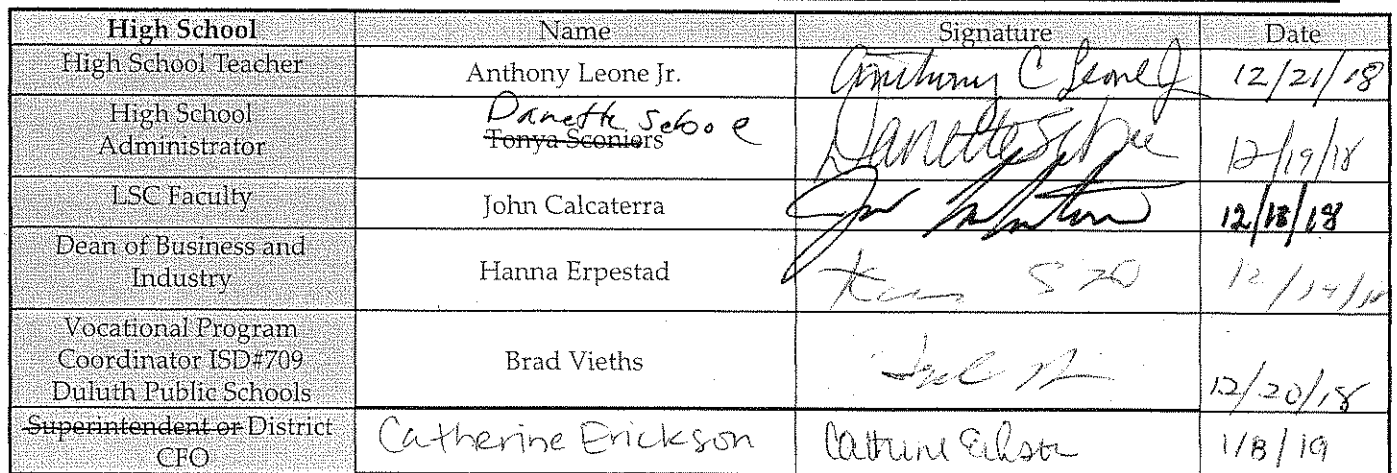 High School Name Signature Date
High School Teacher Anthony Leone Jr. Anthony C Leone Jr 12/21/18
High School Administrator Danette Seboe Tonya Sconiers Danette Seboe 12/19/18
LSC Faculty John Calcaterra 12/18/18
Dean of Business and Industry Hanna Erpestad
Vocational Program Coordinator ISD#709 Duluth Public Schools Brad Vieths 12/20/18
Superintendent or District CFO Catherine Erickson Catherine Erickson 1/8/19